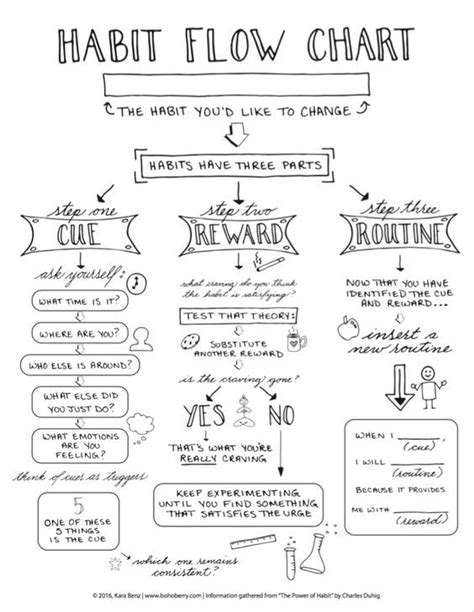 HABIT FLOW CHART
THE HABIT YOU'D LIKE TO CHANGE
HABITS HAVE THREE PARTS
step one
CUE
ask yourself:
WHAT TIME IS IT?
WHERE ARE YOU?
WHO ELSE IS AROUND?
WHAT ELSE DID
YOU JUST DO?
WHAT EMOTIONS
ARE YOU
FEELING?
think of cues as triggers
5
ONE OF THESE
5 THINGS
IS THE CUE
which one remains
consistent?
step two
REWARD
what craving do you think
the habit is satisfying?
TEST THAT THEORY:
SUBSTITUTE
ANOTHER REWARD
is the craving gone?
YES
NO
THAT'S WHAT YOU'RE
REALLY CRAVING
KEEP EXPERIMENTING
UNTIL YOU FIND SOMETHING
THAT SATISFIES THE URGE
step three
ROUTINE
NOW THAT YOU HAVE
IDENTIFIED THE CUE
AND REWARD...
insert a
new routine
WHEN I ________,
(cue)
I WILL ________
(routine)
BECAUSE IT PROVIDES
ME WITH ________.
(reward)
© 2016, Kara Benz | www.bohoberry.com | Information gathered from "The Power of Habit" by Charles Duhig